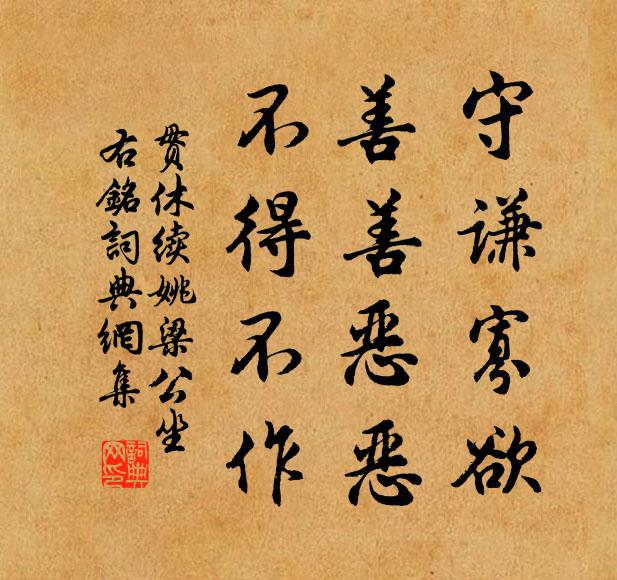 守谦寡欲
善善恶恶
不得不作
贯休续姚梁公坐
右銘詞典網集
詞典
网印